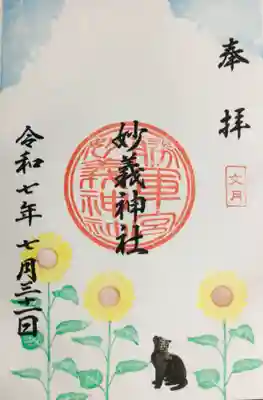 奉拝
文月
妙義神社
令和七年七月三十一日